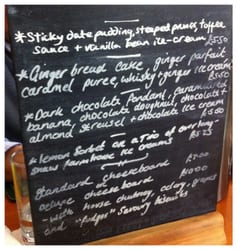 *Sticky date pudding, steeped prunes, toffee
sauce + vanilla bean ice-cream £5.50
*Ginger bread cake, ginger parfait
caramel puree, whisky + ginger ice cream
£5.50
*Dark chocolate fondant, caramelised
banana, chocolate doughnut, chocolate +
almond streusel + chocolate ice cream
£5.00
*lemon Sorbet or a Trio of our home-
farmhouse ice creams £5.25
Standard cheeseboard £7.00
deluxe cheeseboard £10.00
- with house chutney, celery, grapes
and "fudges" Savoury biscuits